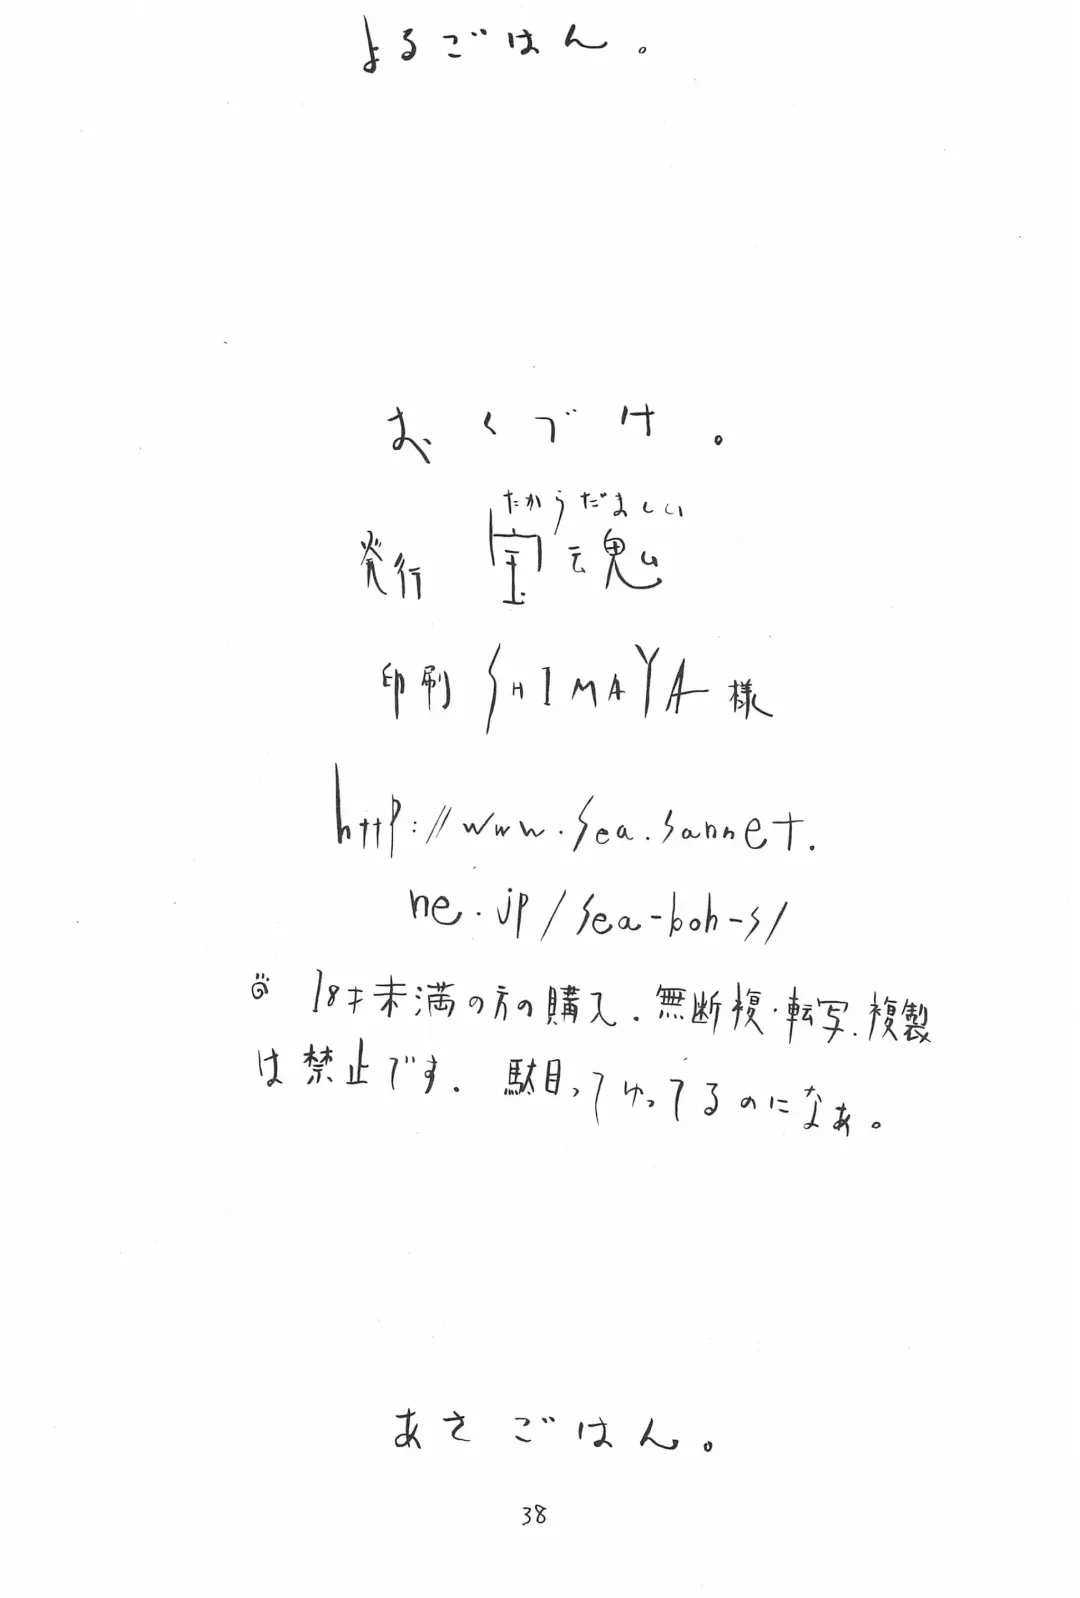 よるごはん。
おくづけ。
たからだましい
発行 宝魂
印刷 SHIMAYA様
http://www.sea.sannet.
ne.jp/sea-boh-s/
◎ 18才未満の方の購入.無断複・転写.複製
は禁止です. 駄目ってゆってるのになぁ。
あさごはん。
38